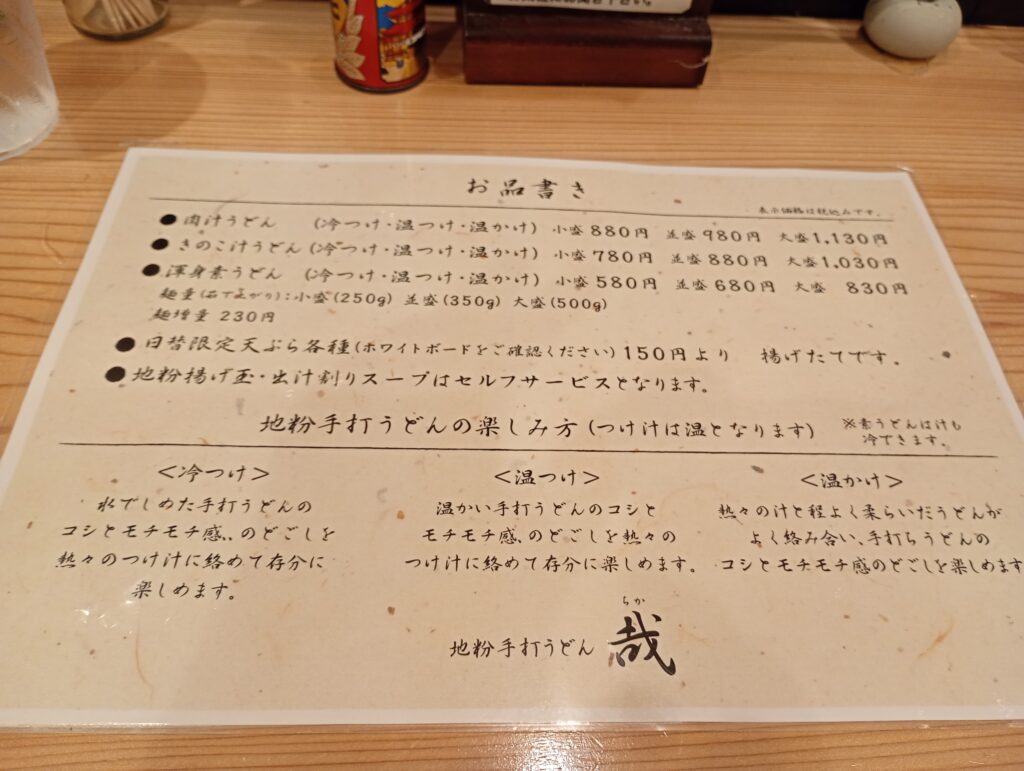 お品書き
表示価格は税込みです。
●肉汁うどん (冷つけ・温つけ・温かけ) 小盛880円 並盛980円 大盛1,130円
●きのこ汁うどん(冷つけ・温つけ・温かけ) 小盛780円 並盛880円 大盛1,030円
●渾身素うどん (冷つけ・温つけ・温かけ) 小盛580円 並盛680円 大盛 830円
麺量(茹で上がり):小盛(250g) 並盛(350g) 大盛(500g)
麺増量 230円
●日替限定天ぷら各種(ホワイトボードをご確認ください)150円より 揚げたてです。
●地粉揚げ玉・出汁割りスープはセルフサービスとなります。
地粉手打うどんの楽しみ方(つけ汁は温となります)
※素うどんは汁も
冷できます。
<冷つけ>
水でしめた手打うどんの
コシとモチモチ感、のどごしを
熱々のつけ汁に絡めて存分に
楽しめます。
<温つけ>
温かい手打うどんのコシと
モチモチ感、のどごしを熱々の
つけ汁に絡めて存分に楽しめます。
<温かけ>
熱々の汁と程よく柔らいだうどんが
よく絡み合い、手打ちうどんの
コシとモチモチ感のどごしを楽しめます
ちか
地粉手打うどん 哉